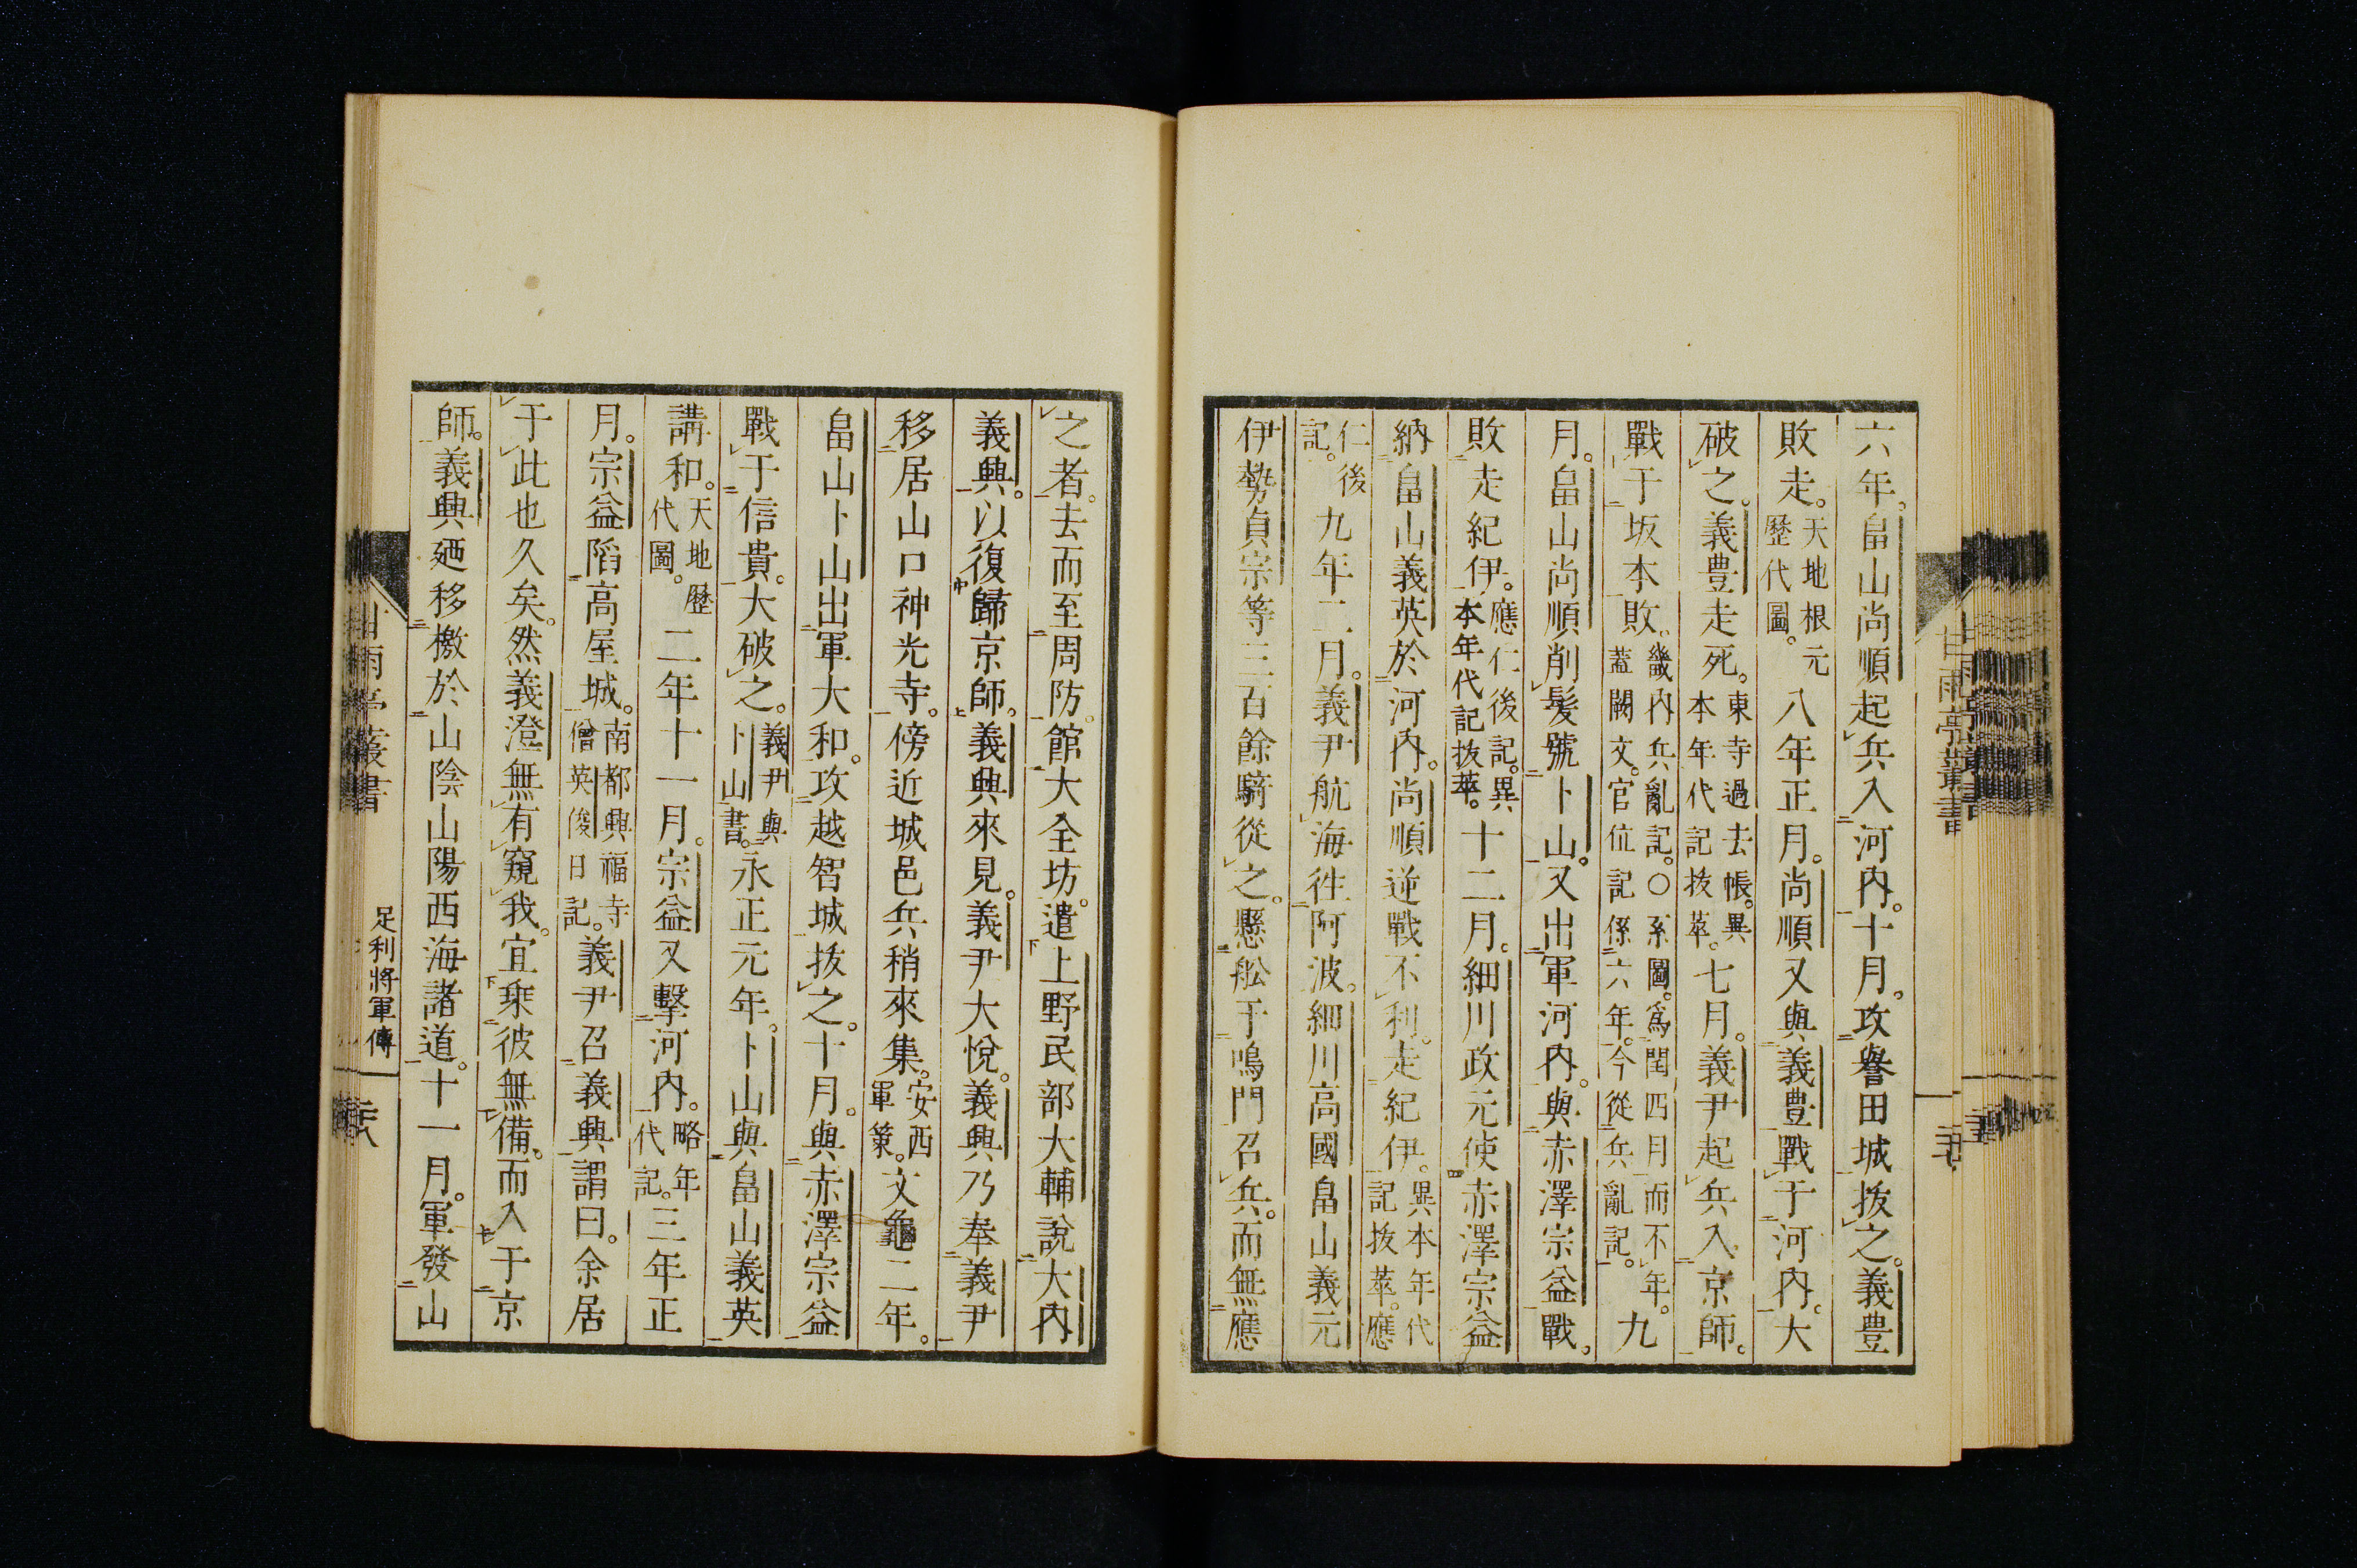 六年。畠山尚順起兵入河内。十月。攻譽田城抜之。義豊
敗走。天地根元歷代圖。八年正月。尚順又與義豊戰于河内。大
破之。義豊走死。東寺過去帳。異本年代記抜萃。七月。義尹起兵入京師。
戰于坂本敗。畿内兵亂記。〇系圖。爲閏四月而不年。蓋闕文。官位記係六年。今從兵亂記。九
月。畠山尚順削髮號卜山。又出軍河内。與赤澤宗益戰。
敗走紀伊。應仁後記。異本年代記抜萃。十二月。細川政元使赤澤宗益
納畠山義英於河内。尚順逆戰不利。走紀伊。異本年代記抜萃。應
仁後記。九年二月。義尹航海徃阿波。細川高國畠山義元
伊勢貞宗等三百餘騎從之。懸舩于鳴門召兵。而無應
之者。去而至周防。館大全坊。遣上野民部大輔說大内
義興。以復歸京師。義興來見。義尹大悅。義興乃奉義尹
移居山口神光寺。傍近城邑兵稍來集。安西軍策。文龜二年。
畠山卜山出軍大和。攻越智城抜之。十月。與赤澤宗益
戰于信貴。大破之。義尹與卜山書。永正元年。卜山與畠山義英
講和。天地歷代圖。二年十一月。宗益又擊河内。略年代記。三年正
月。宗益陷高屋城。南都興福寺僧英俊日記。義尹召義興謂曰。余居
于此也久矣。然義澄無有窺我。宜乗彼無備。而入于京
師。義興廼移檄於山陰山陽西海諸道。十一月。軍發山
甘雨亭叢書
足利將軍傳